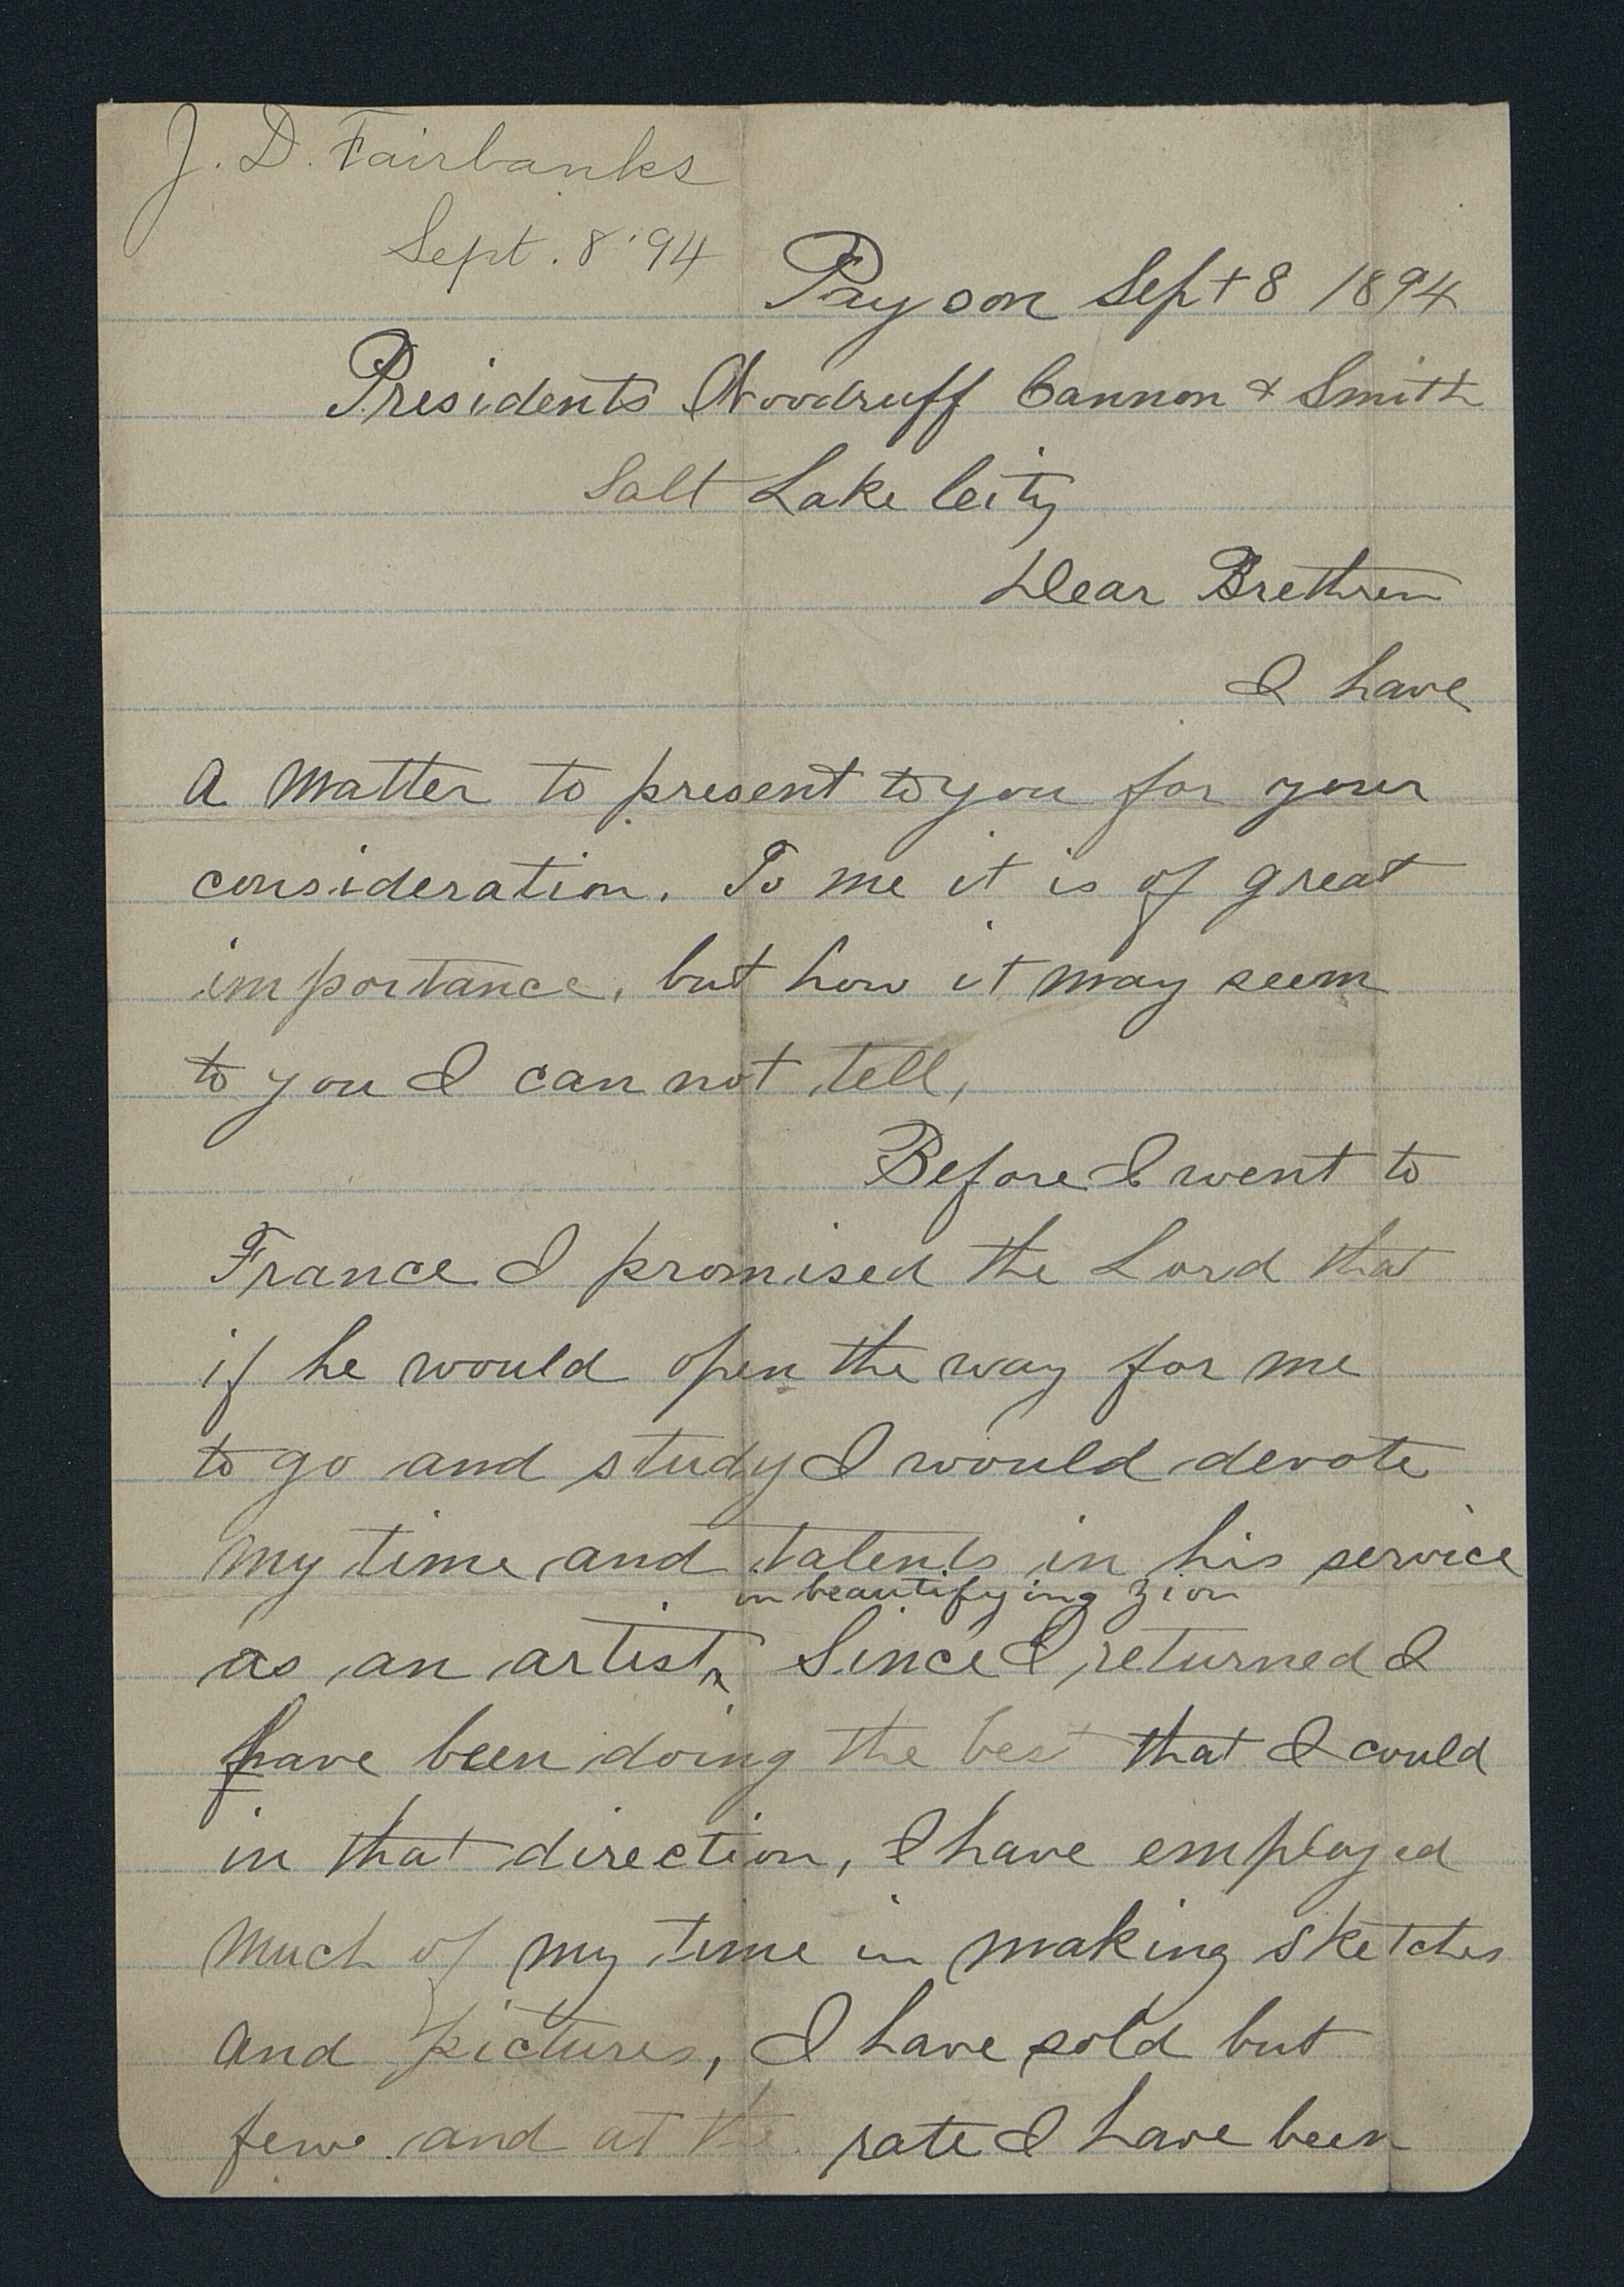 J. D. Fairbanks
Sept. 8 '94
Payson Sept 8 1894
Presidents Woodruff Cannon & Smith
Salt Lake City
Dear Brethren
I have
a matter to present to you for your
consideration. To me it is of great
importance, but how it may seem
to you I can not tell,
Before I went to
France I promised the Lord that
if he would open the way for me
to go and study I would devote
my time and talents in his service
in beautifying Zion
as an artist ^ Since I returned I
have been doing the best that I could
in that direction, I have employed
much of my time in making sketches
and pictures, I have sold but
few and at the rate I have been